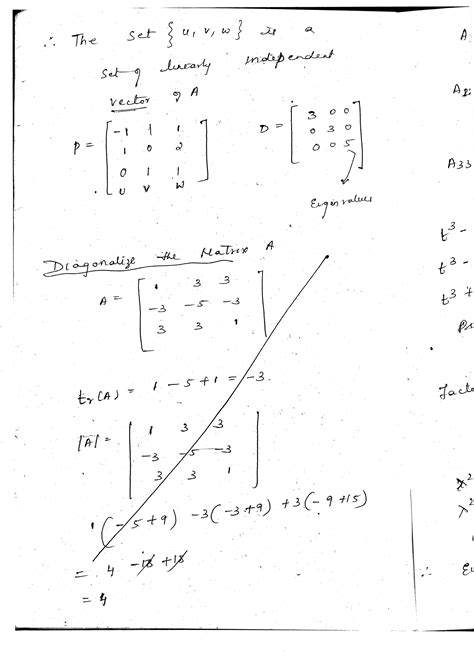 ∴ The set {u, v, w} is a
set of linearly independent
vector of A
P = [ -1 1 1
1 0 2
0 1 1 ]
u v w
D = [ 3 0 0
0 3 0
0 0 5 ]
Eigen values
Diagonalize the Matrix A
A = [ 1 3 3
-3 -5 -3
3 3 1 ]
tr(A) = 1 - 5 + 1 = -3.
|A| = | 1 3 3
-3 -5 -3
3 3 1 |
1(-5+9) -3(-3+9) +3(-9+15)
= 4 -18 +18
= 4
A
A33
t³ -
t³ -
t³ +
Facto
∴